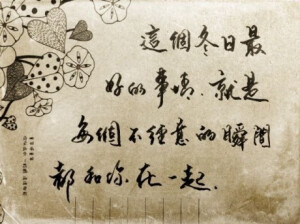 這個冬日最
好的事情.就是
每個不經意的瞬間
都和你在一起.